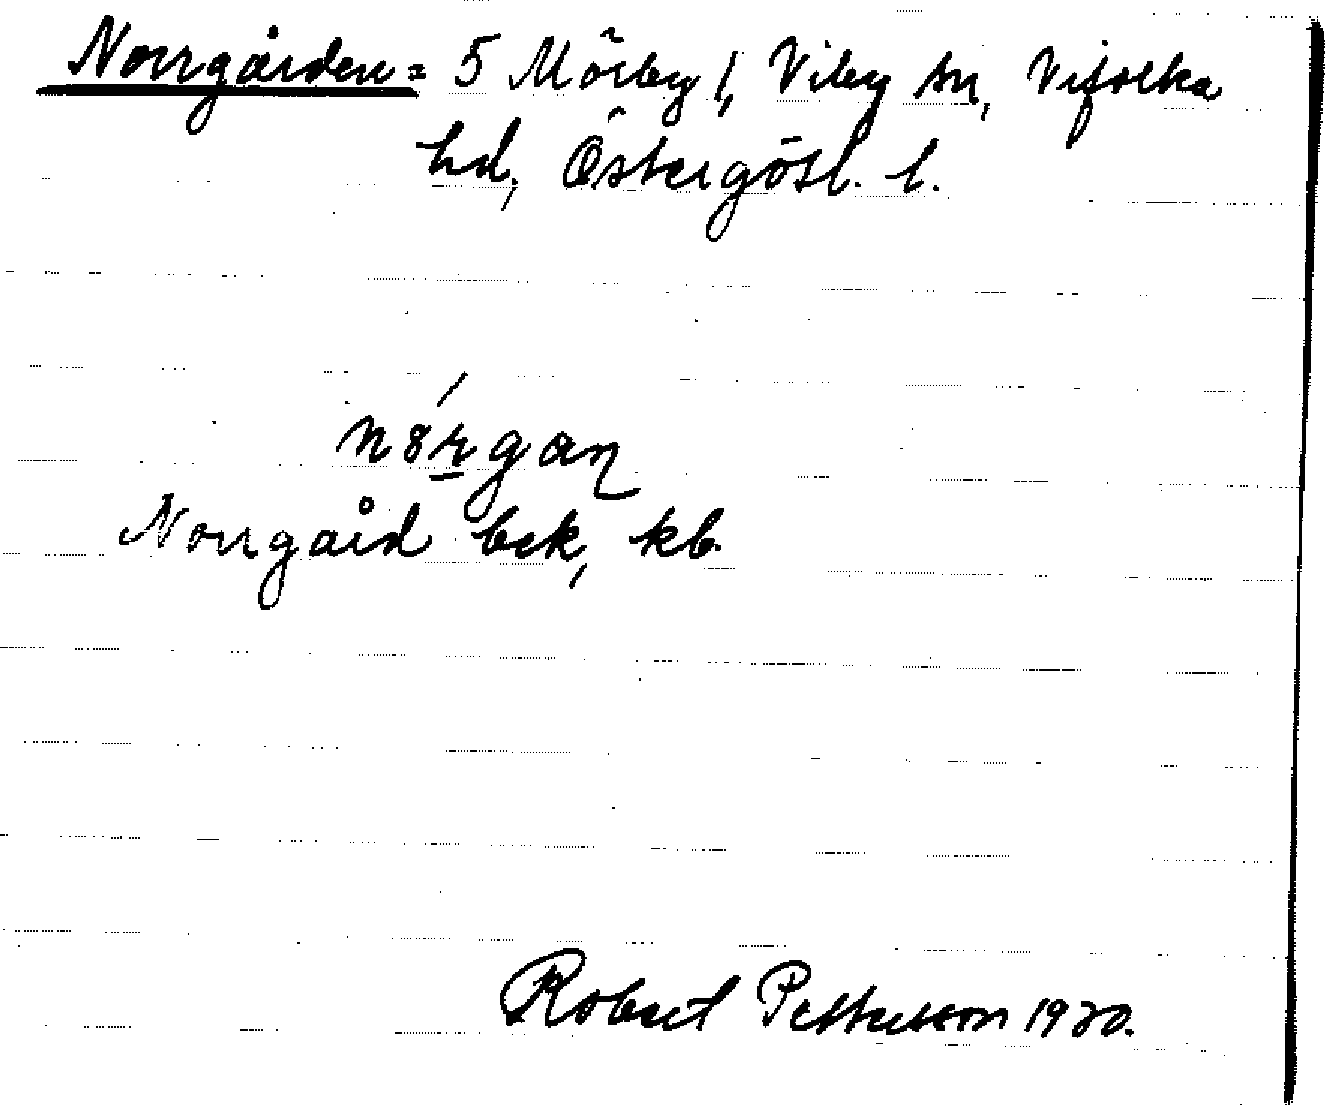 Norrgården = 5 Mörby 1, Viby sn, Vifolka
hd, Östergötl. l.
Norrgård bek, kb.
Robert Pettersson 1920.